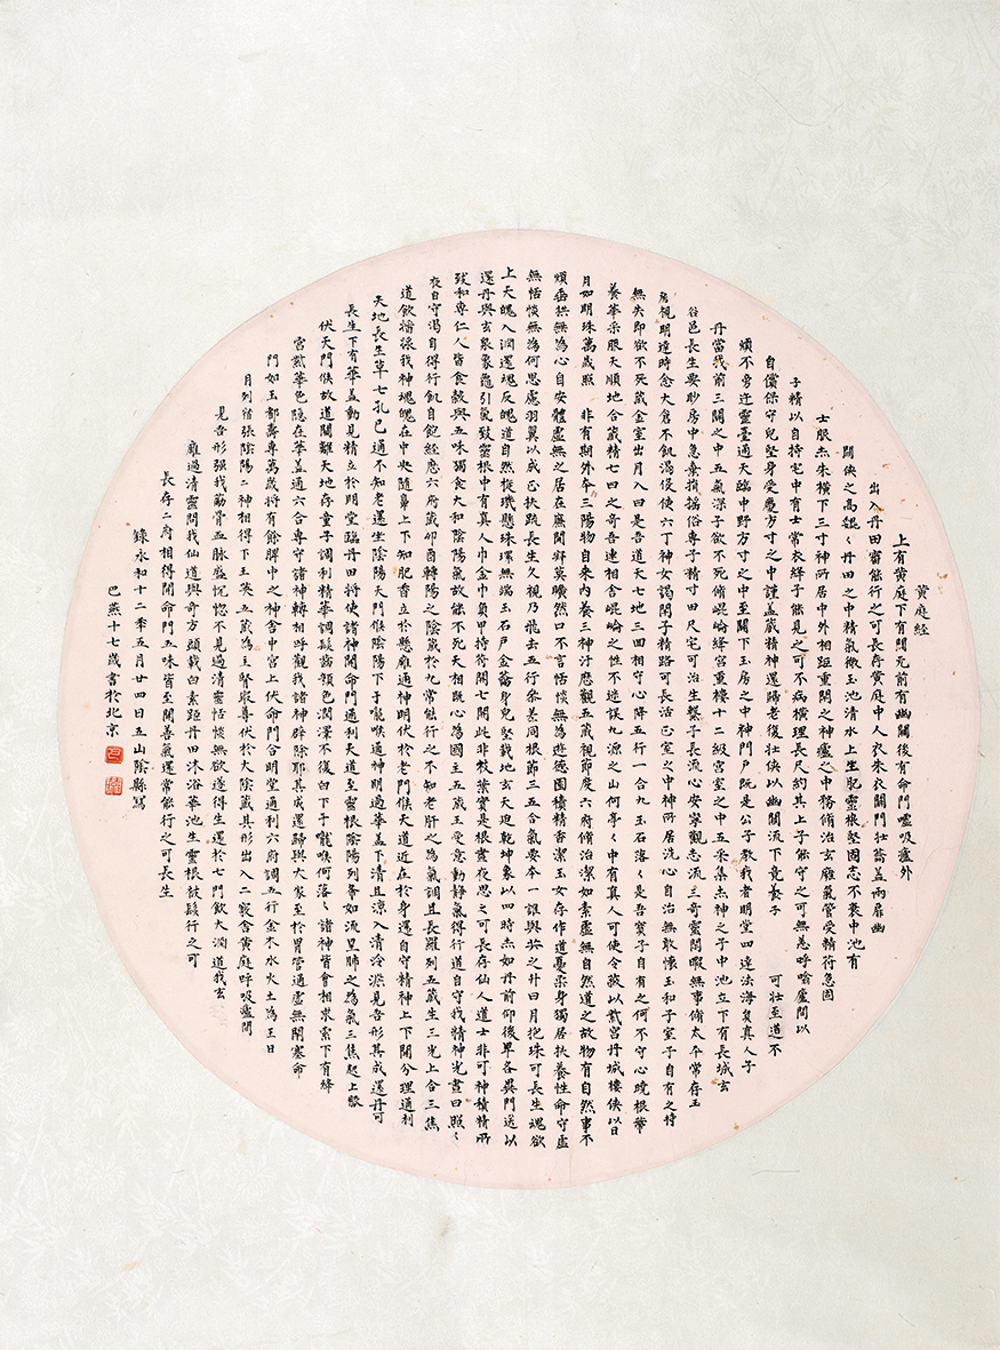 黄庭経
上有黄庭下有關元前有幽闕後有命門嘘吸廬外
出入丹田審能行之可長存黄庭中人衣朱衣關門壮籥盖兩扉幽
關俠之高巍〻丹田之中精氣微玉池清水上生肥靈根堅固志不衰中池有
士服赤朱横下三寸神所居中外相距重閉之神廬之中務脩治玄廱氣管受精符急固
子精以自持宅中有士常衣絳子能見之可不病横理長尺約其上子能守之可無恙呼噏廬間以
自償保守皃堅身受慶方寸之中謹盖藏精神還歸老復壮俠以幽闕流下竟養子 可壮至道不
煩不旁迕靈臺通天臨中野方寸之中至關下玉房之中神門戶既是公子教我者明堂四達法海負真人子
丹當我前三關之中五氣深子欲不死脩崐崘絳宮重樓十二級宮室之中五采集赤神之子中池立下有長城玄
谷邑長生要眇房中急棄捐搖俗専子精寸田尺宅可治生繫子長流心安寧觀志流三奇靈閒暇無事脩太平常存玉
房視明達時念大倉不飢渇役使六丁神女謁閉子精路可長活正室之中神所居洗心自治無敢懐玉和子室子自有之持
無失即欲不死藏金室出月入日是吾道天七地三回相守心降五行一合九玉石落〻是吾寳子自有之何不守心曉根蒂
養華采服天順地合藏精七日之奇吾連相合崐崘之性不迷誤九源之山何亭〻中有真人可使令蔽以紫宮丹城樓俠以日
月如明珠萬歳照 非有期外本三陽物自来内養三神汗歴觀五藏視節度六府脩治潔如素虚無自然道之故物有自然事不
煩垂拱無為心自安體虚無之居在廉間寂莫曠然口不言恬惔無為遊徳園積精香潔玉女存作道憂柔身獨居扶養性命守虚
無恬惔無為何思慮羽翼以成正扶疏長生久視乃飛去五行参差同根節三五合氣要本一誰與共之升日月抱珠可長生魂欲
上天魄入淵還魂反魄道自然旋璣懸珠環無端玉石戸金籥身皃堅載地玄天迫乾坤象以四時赤如丹前仰後卑各異門送以
還丹與玄泉象龜引氣致靈根中有真人巾金巾負甲持符開七門此非枝葉實是根晝夜思之可長存仙人道士非可神積精所
致和専仁人皆食榖與五味獨食大和陰陽氣故能不死天相既心為國主五藏王受意動静氣得行道自守我精神光晝日照〻
夜自守渇自得行飢自飽経歴六府藏卯酉轉陽之陰藏於九常能行之不知老肝之為氣調且長羅列五藏生三光上合三焦
道飲漿我神魂魄在中央随鼻上下知肥香立於懸廱通神明伏於老門候天道近在於身還自守精神上下開分理通利
天地長生草七孔已通不知老還坐陰陽天門候陰陽下于嚨喉通神明過華盖下清且涼入清泠淵見吾形其成還丹可
長生下有華盖動見精立於明堂臨丹田将使諸神開命門通利天道至靈根陰陽列布如流星肺之為氣三焦起上服
伏天門候故道闚離天地存童子調利精華調髮齒顔色潤澤不復白下于嚨喉何落〻諸神皆會相求索下有絳
宮紫華色隠在華盖通六合専守諸神轉相呼觀我諸神辟除耶其成還歸與大家至於胃管通虚無閉塞命
門如玉都壽専萬歳将有餘脾中之神舎中宮上伏命門合明堂通利六府調五行金木水火土為王日
月列宿張陰陽二神相得下玉英五藏為主腎最尊伏於大陰藏其形出入二竅舎黄庭呼吸廬間
見吾形强我筋骨血脉盛恍惚不見過清靈恬惔無欲遂得生還於七門飲大淵道我玄
廱過清靈問我仙道與奇方頭載白素距丹田沐浴華池生靈根被髮行之可
長存二府相得開命門五味皆至開善氣還常能行之可長生
録永和十二年五月廿四日五山陰縣寫
巴燕十七歳書於北京